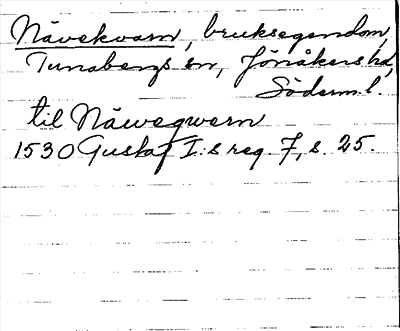 Nävekvarn, bruksegendom,
Tunabergs sn, Jönåkers hd,
Söderm. l.
til Näwegwern
1530 Gustaf I:s reg. 7, s. 25.